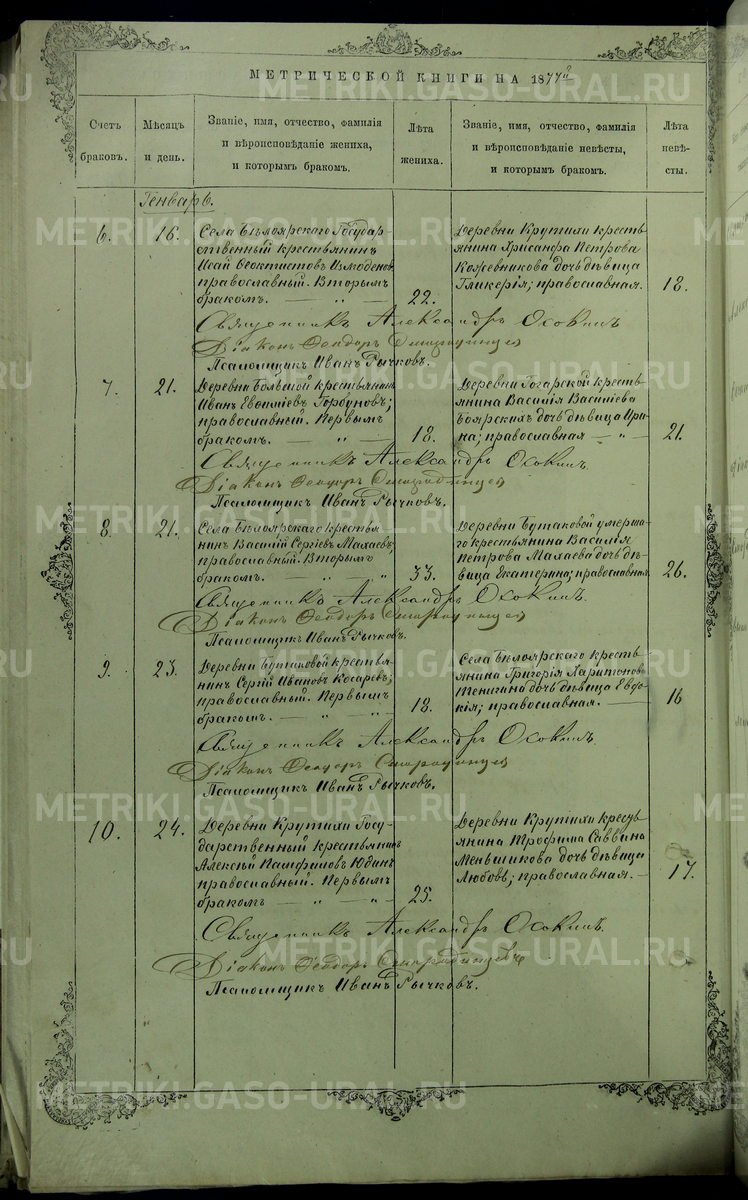 МЕТРИЧЕСКОЙ КНИГИ НА 1877й
Счетъ браковъ.
Мѣсяцъ и день.
Званіе, имя, отчество, фамилія
и вѣроисповѣданіе жениха,
и которымъ бракомъ.
Лѣта жениха.
Званіе, имя, отчество, фамилія
и вѣроисповѣданіе невѣсты,
и которымъ бракомъ.
Лѣта невѣ-
сты.
Генварь.
6.
16.
Села Бѣлоярскаго Государ-
ственный крестьянинъ
Исай Ѳеоктистовъ Измоденов
православный. Вторымъ
бракомъ. — „ —
22.
Деревни Крутихи кресть-
янина Хрисанфа Петрова
Кожевникова дочь дѣвица
Гликерія; православная.
18.
Священникъ Александръ Осокинъ
Діаконъ Ѳеодоръ
Псаломщикъ Иванъ Рычковъ.
7.
21.
Деревни Большой крестьянинъ
Иванъ Евѳиміевъ Горбуновъ;
православный. Первымъ
бракомъ. — „ —
18.
Деревни Гагарской кресть-
янина Василія Василіева
Боярскихъ дочь дѣвица Ири-
на; православная — „ —
21.
Священникъ Александръ Осокинъ
Діаконъ Ѳеодоръ
Псаломщикъ Иванъ Рычковъ.
8.
21.
Села Бѣлоярскаго крестья-
нинъ Василій Сергіевъ Махаевъ;
православный. Вторымъ
бракомъ. — „ — „
33.
Деревни Бутаковой умерша-
го крестьянина Василія
Петрова Махаева дочь дѣ-
вица Екатерина; православная
26.
Священникъ Александръ Осокинъ.
Діаконъ Ѳеодоръ
Псаломщикъ Иванъ Рычковъ.
9.
23.
Деревни Бутаковой крестья-
нинъ Сергій Ивановъ Косаревъ;
православный. Первымъ
бракомъ. — „ — „
18.
Села Бѣлоярскаго кресть-
янина Григорія Харитонова
дочь дѣвица Евдо-
кія; православная. —
16
Священникъ Александръ Осокинъ.
Діаконъ Ѳеодоръ
Псаломщикъ Иванъ Рычковъ.
10.
24.
Деревни Крутихи Госу-
дарственный крестьянинъ
Алексѣй Памфиловъ Юдинъ
православный. Первымъ
бракомъ — „ — „ —
25.
Деревни Крутихи кресть-
янина Трофима Саввина
Меньшикова дочь дѣвица
Любовь; православная. —
17.
Священникъ Александръ Осокинъ.
Діаконъ Ѳеодоръ
Псаломщикъ Иванъ Рычковъ.
METRIKI.GASO-URAL.RU